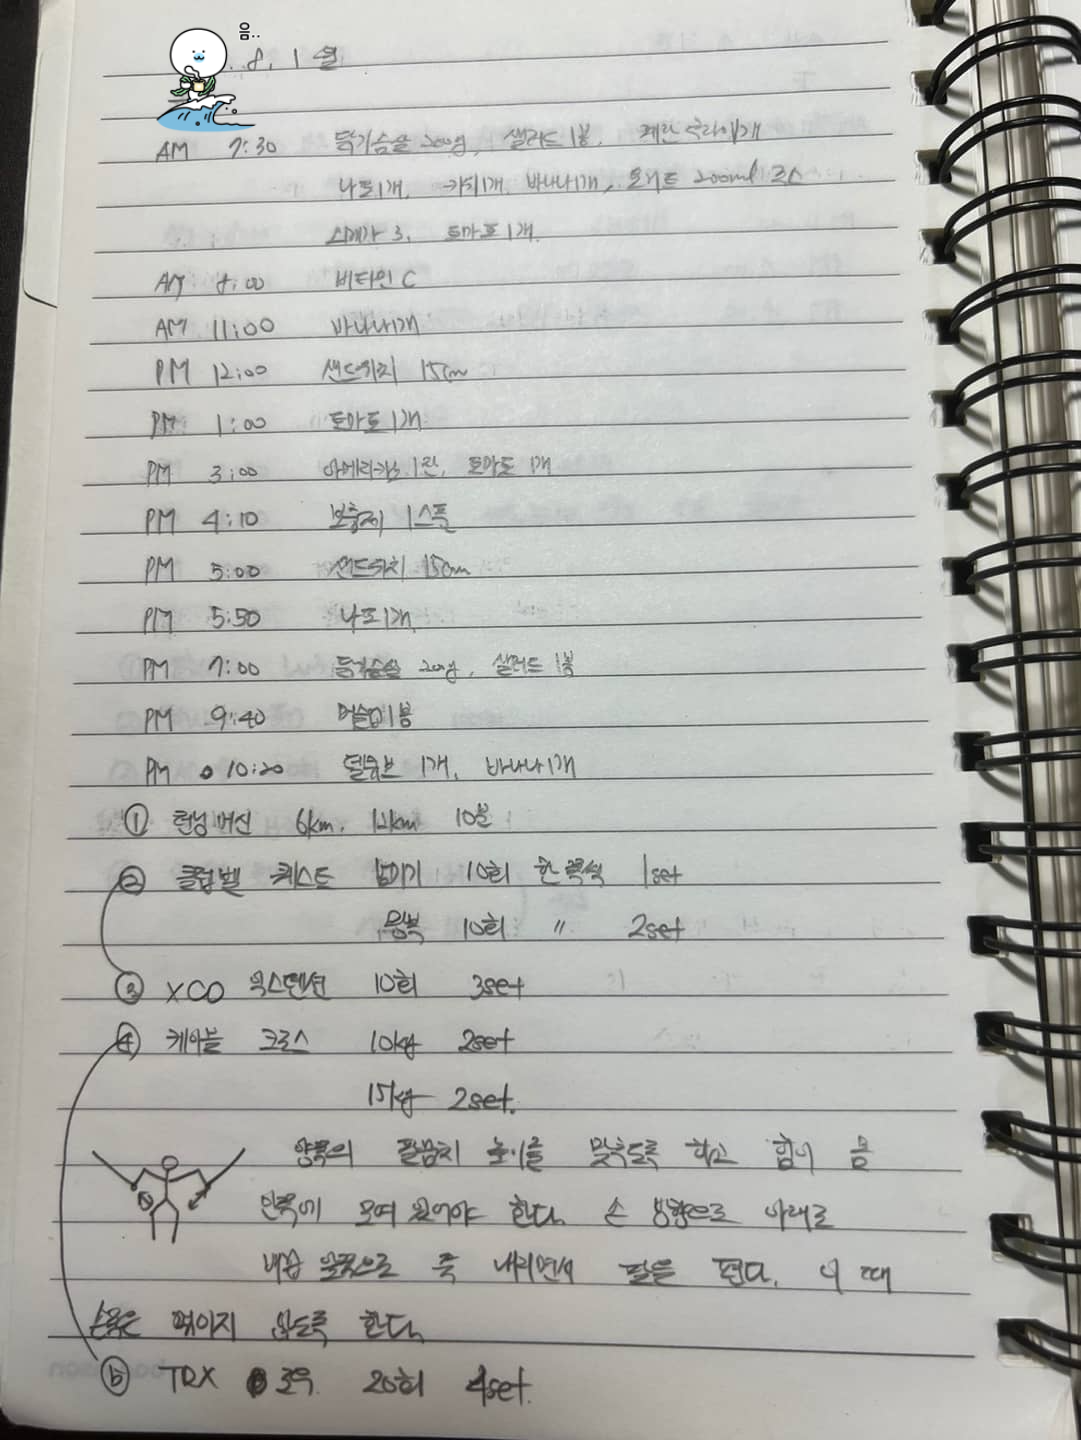 음..
8. 1 월
AM 7:30 닭가슴살 200g, 샐러드 1봉. 계란 후라이 1개
낫또 1개, 키위 1개, 바나나 1개, 오쉐트 200ml
오메가 3. 토마토 1개.
AM 8:00 비타민 C
AM 11:00 바나나 1개
PM 12:00 샌드위치 15cm
PM 1:00 토마토 1개
PM 3:00 아메리카노 1잔, 토마토 1개
PM 4:10 보충제 1스푼
PM 5:00 샌드위치 15cm
PM 5:50 낫또 1개
PM 7:00 닭가슴살 200g, 샐러드 1봉
PM 9:40 1봉
PM 10:20 1개, 바나나 1개
① 런닝 머신 6km. 12km 10분
② 클럽벨 캐스트 넘기기 10회 한쪽씩 1set
왕복 10회 〃 2set
③ XCO 익스텐션 10회 3set
④ 케이블 크로스 10kg 2set
15kg 2set.
양쪽의 팔꿈치 높이를 맞추도록 하고 힘이 몸
안쪽에 모여 있어야 한다. 손 방향으로 아래로
배꼽 앞쪽으로 쭉 내리면서 팔을 편다. 이 때
손목은 꺾이지 않도록 한다.
⑤ TRX 로우. 20회 4set.